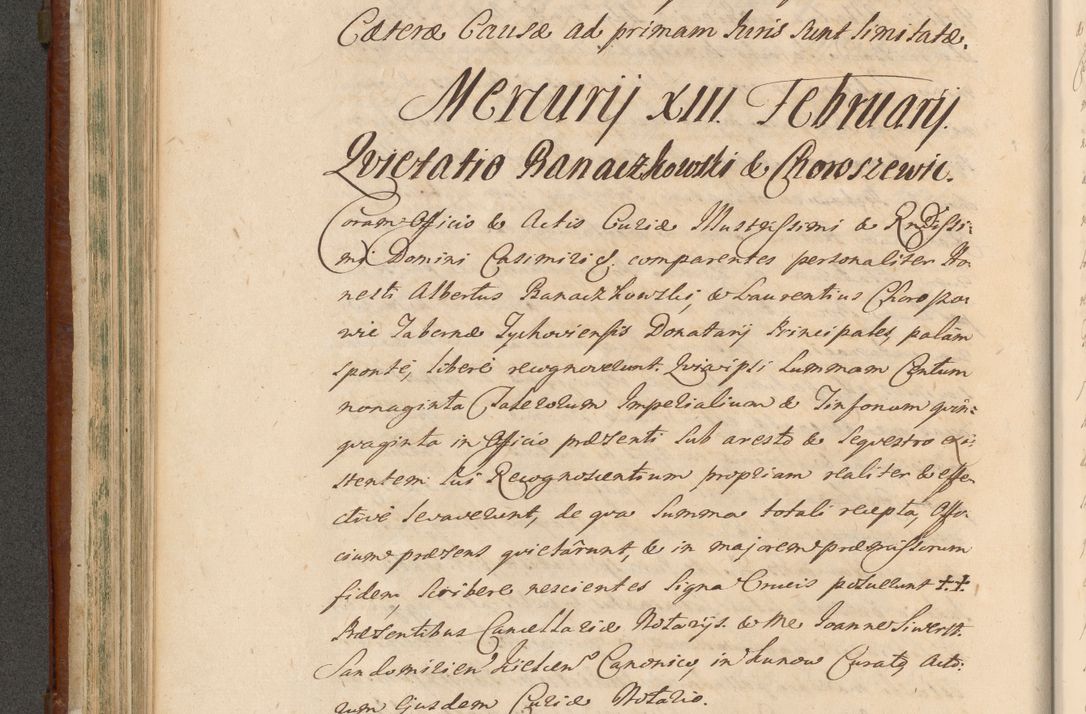 Cæteræ Causæ ad primam Juris sunt limitatæ.
Mercurij XIII. Februarij.
Qvietatio Banaczkowski & Choroszewic.
Coram Officio & Actis Curiæ Illustrissimi & Rndissi:
mi Domini Casimiri &. comparentes personaliter Ho
nesti Albertus Banaczkowskj, & Laurentius Choroszo
wic Tabernæ Tychoviensis Donatarij Principales, palàm
sponte, libere recognoverunt. Qvia ipsi summam Centum
nonaginta Talerorum Imperialium & Tinfonum qvin:
qvaginta in Officio præsenti sub aresto & seqvestro exi
stentem sui Recognoscentium propriam realiter & effe
ctive levaverunt, de qva summa totali recepta, Offi
cium præsens qvietârunt, & in majorem præmissorum
fidem scribere nescientes signa Crucis posuerunt ++.
Præsentibus Cancellariæ Notarijs. & me Joanne Siwerst.
Sandomirien Kielcen. Canonico, in Kunow Curato, Acto:
rum Ejusdem Curiæ Notario.